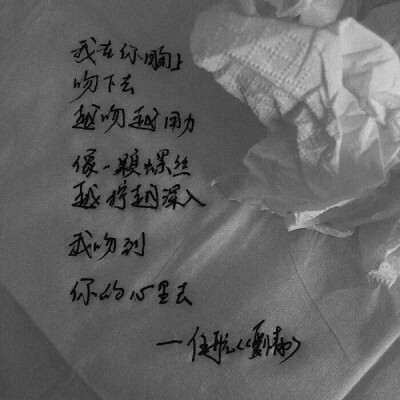 我在你胸上
吻下去
越吻越用力
像一颗螺丝
越拧越深入
我吻到
你的心里去
——任航《爱情》